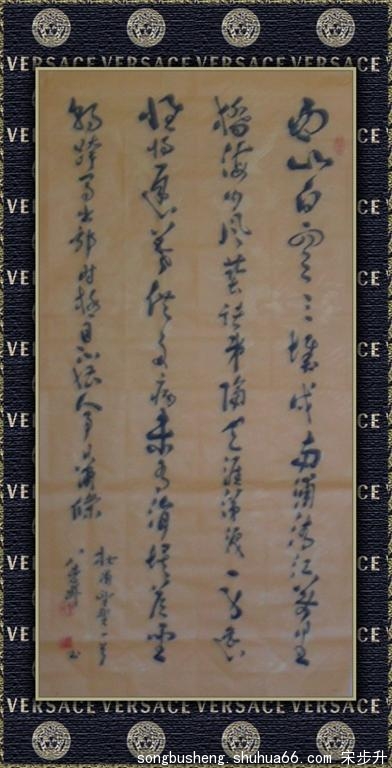 VERSACE VERSACE VERSACE VERSACE
西山白雪三城戍南浦清江萬里
橋海内风塵诸弟隔天涯涕淚一身遥
惟将遲暮供多病未有涓埃答聖
朝跨馬出郊时極目不堪人事日蕭條
杜甫野望一首
VERSACE VERSACE VERSACE VERSACE
songbusheng.shuhua66.com 宋步升